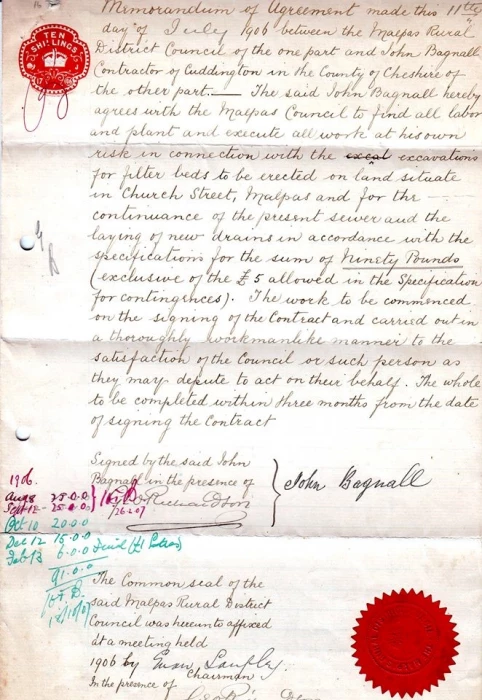 TEN
SHILLINGS
Memorandum of Agreement made this 11th
day of July 1906 between the Malpas Rural
District Council of the one part and John Bagnall
Contractor of Cuddington in the County of Cheshire of
the other part. — The said John Bagnall hereby
agrees with the Malpas Council to find all labor
and plant and execute all work at his own
risk in connection with the excavations
for filter beds to be erected on land situate
in Church Street, Malpas and for the
continuance of the present sewer and the
laying of new drains in accordance with the
specifications for the sum of Ninety Pounds
(exclusive of the £5 allowed in the Specification
for contingences). The work to be commenced
on the signing of the Contract and carried out in
a thoroughly workmanlike manner to the
satisfaction of the Council or such person as
they may depute to act on their behalf. The whole
to be completed within three months from the date
of signing the Contract
Signed by the said John
Bagnall in the presence of
John Bagnall
1906.
Aug 8 25.0.0
Sept 12 25.0.0
26.2.07
Oct 10 20.0.0
Dec 12 15.0.0
Feb 13 6.0.0
91.0.0
The Common seal of the
said Malpas Rural District
Council was hereunto affixed
at a meeting held
1906 by
Chairman
In the presence of